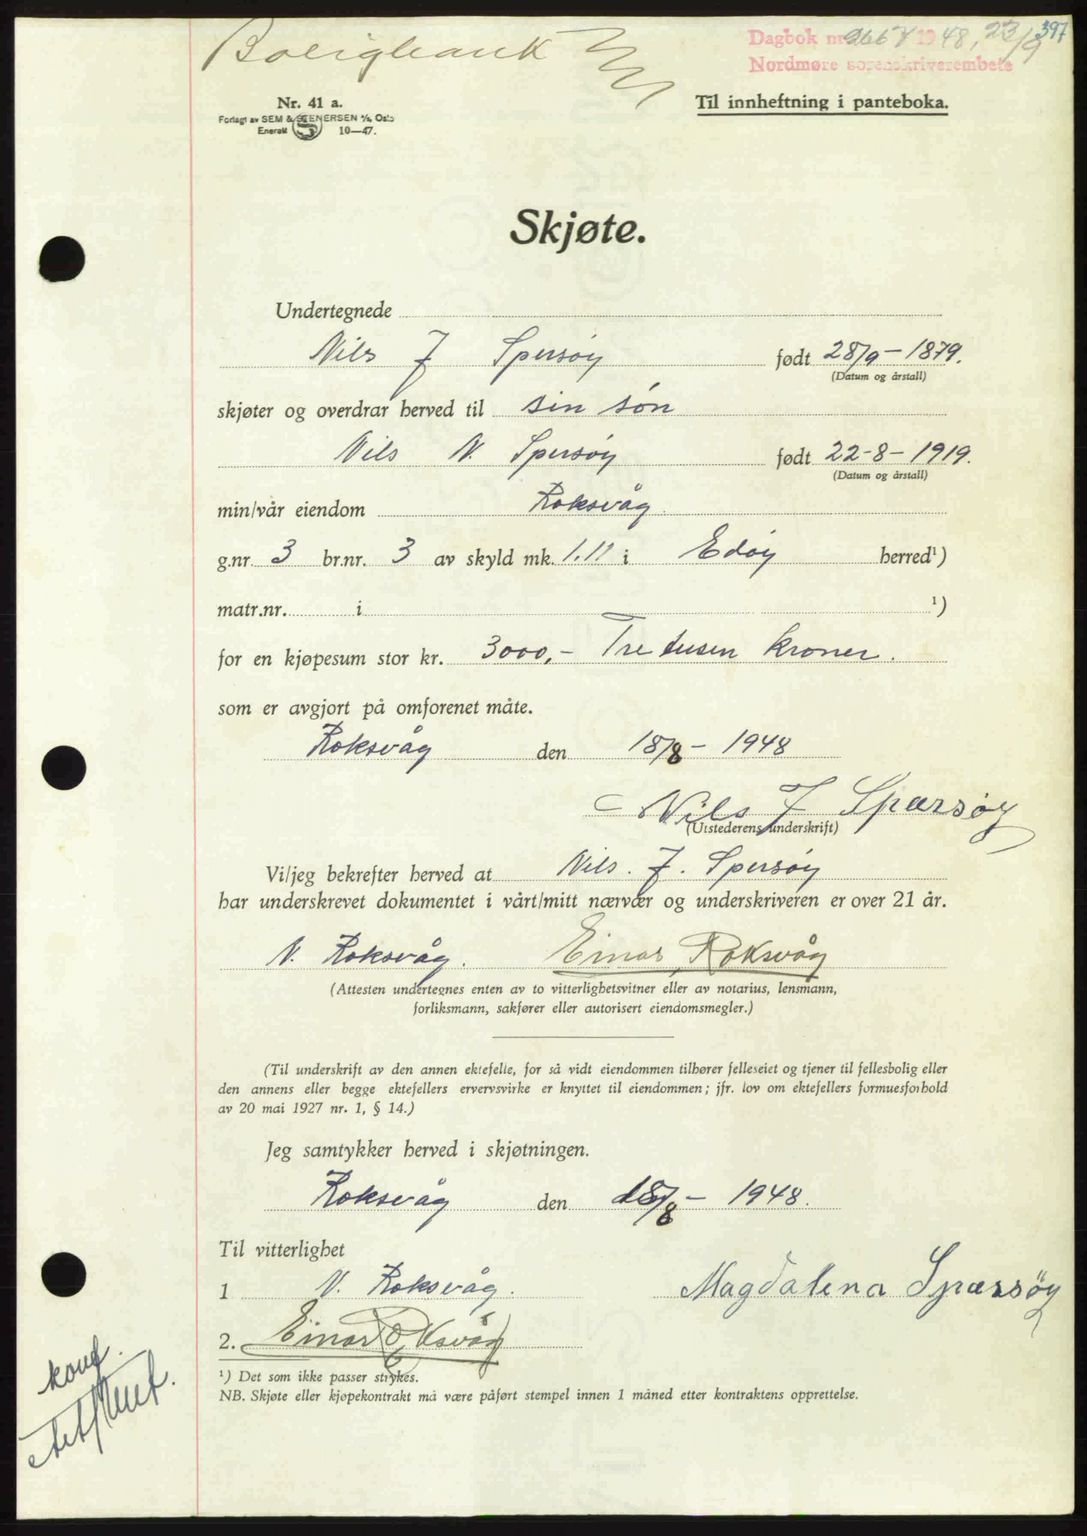 Boligbank
Dagbok nr. 2667 1948, 23/9 397
Nordmøre sorenskriverembete
Nr. 41 a.
Forlagt av SEM & STENERSEN A/s, Oslo
Enerett 10—47.
Til innheftning i panteboka.
Skjøte.
Undertegnede
Nils J Spersøy født 28/9 - 1879.
(Datum og årstall)
skjøter og overdrar herved til sin søn
Nils N. Spersøy født 22-8-1919.
(Datum og årstall)
min/vår eiendom Roksvåg
g.nr. 3 br.nr. 3 av skyld mk. 1.11 i Edøy herred¹)
matr.nr. i ¹)
for en kjøpesum stor kr. 3000,- Tre tusen kroner.
som er avgjort på omforenet måte.
Roksvåg den 18/8 - 1948
Nils J Spærsøy
(Utstederens underskrift)
Vi/jeg bekrefter herved at Nils. J. Spersøy
har underskrevet dokumentet i vårt/mitt nærvær og underskriveren er over 21 år.
N. Roksvåg. Einar Roksvåg
(Attesten undertegnes enten av to vitterlighetsvitner eller av notarius, lensmann,
forliksmann, sakfører eller autorisert eiendomsmegler.)
(Til underskrift av den annen ektefelle, for så vidt eiendommen tilhører felleseiet og tjener til fellesbolig eller
den annens eller begge ektefellers ervervsvirke er knyttet til eiendommen; jfr. lov om ektefellers formuesforhold
av 20 mai 1927 nr. 1, § 14.)
Jeg samtykker herved i skjøtningen.
Roksvåg den 18/8 - 1948.
Til vitterlighet
1 N. Roksvåg. Magdalena Spærsøy
2. Einar Roksvåg
¹) Det som ikke passer strykes.
NB. Skjøte eller kjøpekontrakt må være påført stempel innen 1 måned etter kontraktens opprettelse.